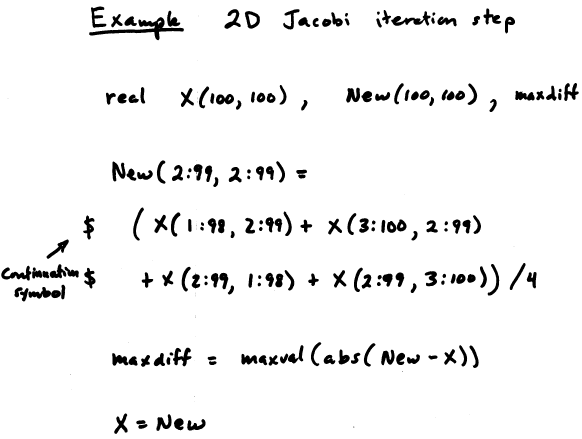 Example 2D Jacobi iteration step
real X(100, 100), New(100, 100), maxdiff
New(2:99, 2:99) =
$ (X(1:98, 2:99) + X(3:100, 2:99)
Continuation
symbol
$ + X(2:99, 1:98) + X(2:99, 3:100)) /4
maxdiff = maxval(abs(New - X))
X = New